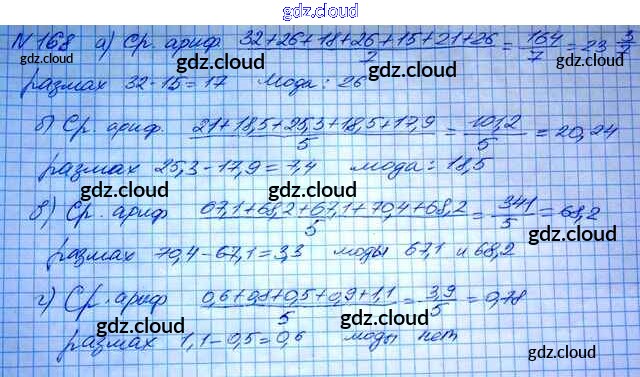 gdz.cloud
N 168 а) Ср. ариф. (32+26+18+26+15+21+26)/7 = 164/7 = 23 3/7
размах 32-15=17 Мода: 26
gdz.cloud gdz.cloud gdz.cloud
б) Ср. ариф. (21+18,5+25,3+18,5+17,9)/5 = 101,2/5 = 20,24
размах 25,3-17,9=7,4 мода: 18,5
gdz.cloud gdz.cloud gdz.cloud
в) Ср. ариф (67,1+68,2+67,1+70,4+68,2)/5 = 341/5 = 68,2
gdz.cloud gdz.cloud gdz.cloud
размах 70,4-67,1=3,3 моды 67,1 и 68,2
г) Ср. ариф (0,6+0,8+0,5+0,9+1,1)/5 = 3,9/5 = 0,78
gdz.cloud gdz.cloud gdz.cloud
размах 1,1-0,5=0,6 моды нет
gdz.cloud